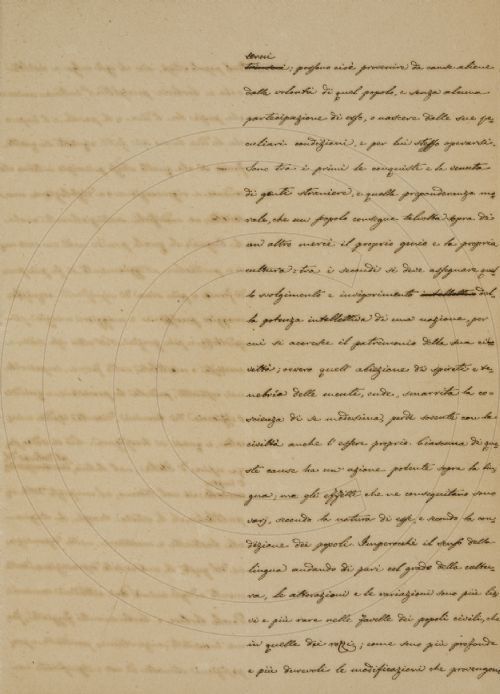 terni
; possono cioè provenire da cause aliene
dalla volontà di quel popolo, e senza alcuna
partecipazione di esso, o nascere dalle sue pe-
culiari condizioni, e per lui stesso operarsi.
Sono tra i primi le conquiste e la venuta
di genti straniere, e quella preponderanza mo-
rale, che un popolo consegue talvolta sopra di
un altro mercè il proprio genio e la propria
cultura: tra i secondi si deve assegnare quel-
lo svolgimento e invigorimento intellettuale del-
la potenza intellettiva di una nazione, per
cui si accresce il patrimonio della sua ci-
viltà; ovvero quell' abiezione di spirito e te-
nebria della mente, onde, smarrita la co-
scienza di se medesima, perde sovente con la
civiltà anche l' essere proprio. Ciascuna di que-
ste cause ha un' azione potente sopra la lin-
gua; ma gli effetti che ne conseguitano sono
varj, secondo la natura di esse, e secondo la con-
dizione dei popoli. Imperocchè il senso della
lingua andando di pari col grado della coltu-
ra, le alterazioni e le variazioni sono più lie-
vi e più rare nelle favelle dei popoli civili, che
in quelle dei rozzi; come sono più profonde
e più durevoli le modificazioni che provengono